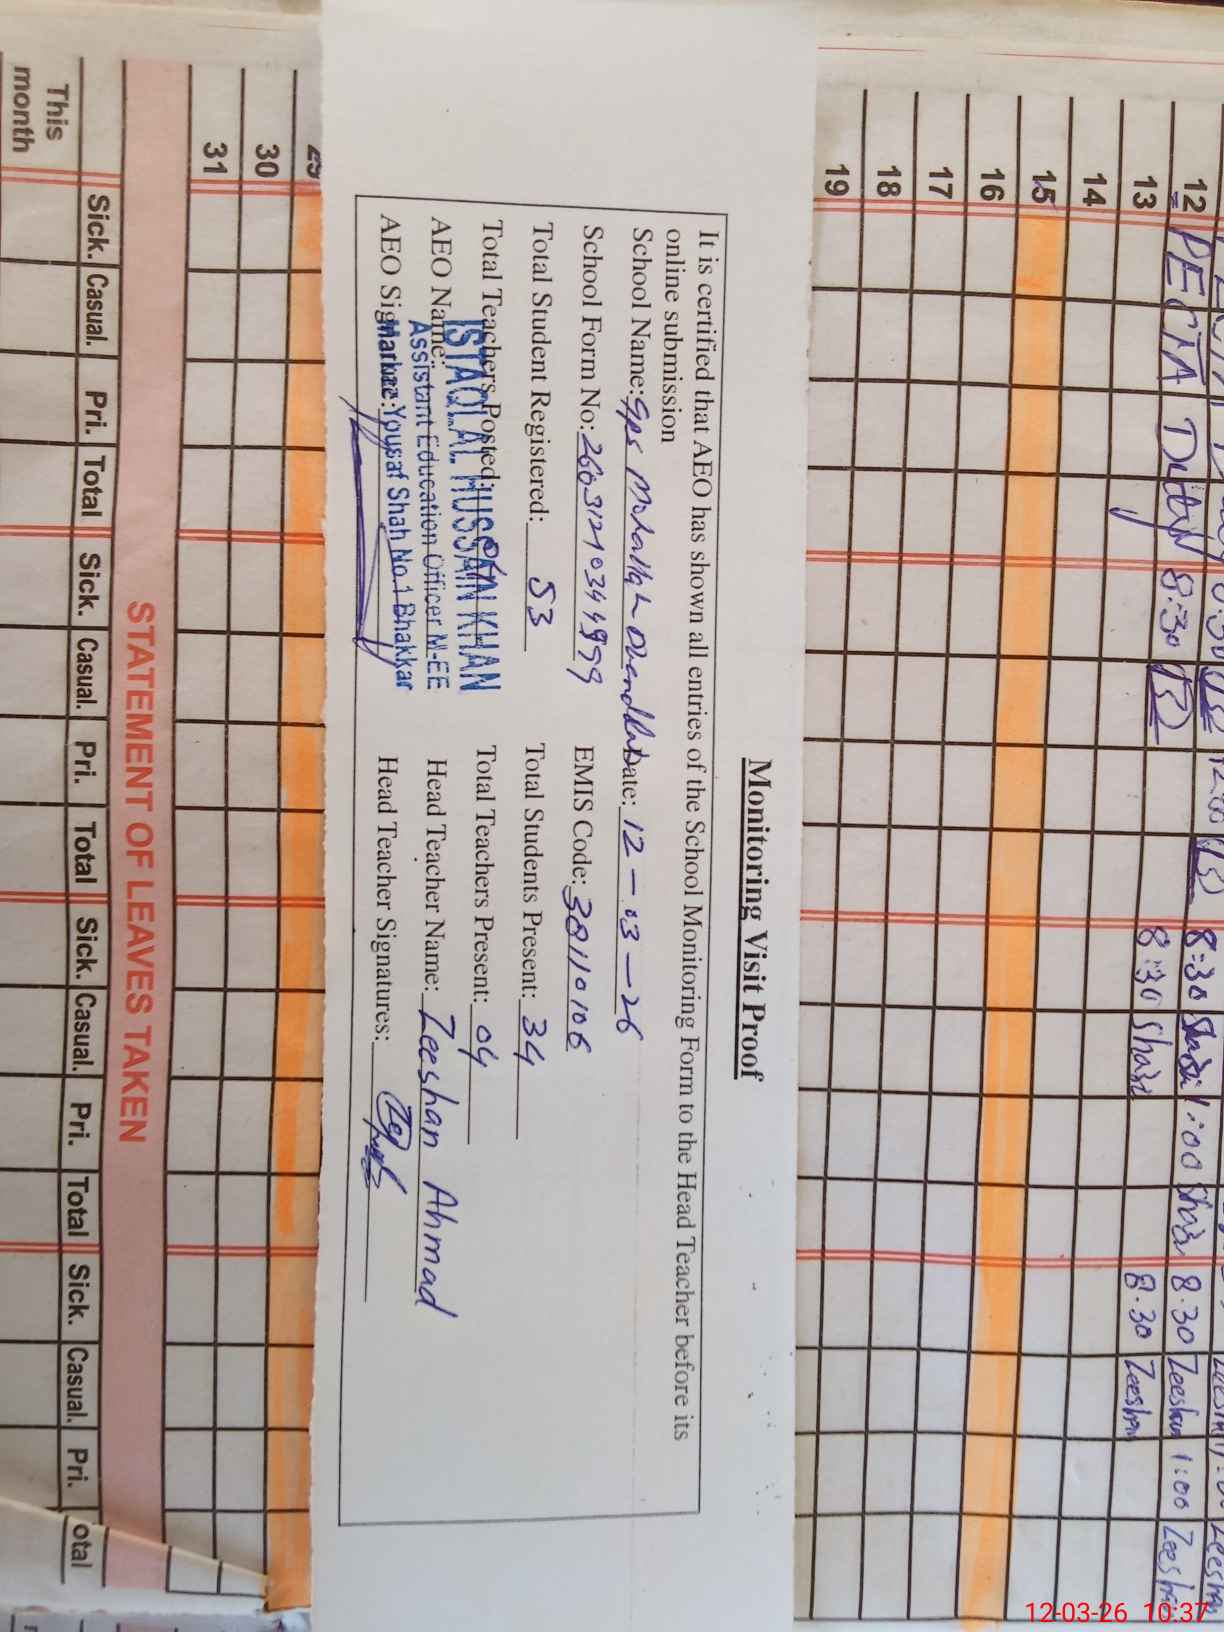 12 PECTA Duty 8:30 8:30 1:00 8:30 Zeeshan 1:00 Zeeshan
13 8:30 8:30 Zeeshan
14
15
16
17
18
19
Monitoring Visit Proof
It is certified that AEO has shown all entries of the School Monitoring Form to the Head Teacher before its
online submission
School Name: Gps Mohallah Date: 12-03-26
School Form No: EMIS Code: 38110106
Total Student Registered: 53 Total Students Present: 34
Total Teachers Posted: Total Teachers Present: 04
AEO Name: Head Teacher Name: Zeeshan Ahmad
AEO Signature: Head Teacher Signatures:
ISTAQLAL HUSSAIN KHAN
Assistant Education Officer M-EE
Markaz: Yousaf Shah No.1 Bhakkar
29
30
31
STATEMENT OF LEAVES TAKEN
Sick. Casual. Pri. Total Sick. Casual. Pri. Total Sick. Casual. Pri. Total Sick. Casual. Pri. otal
This
month
12-03-26 10:37